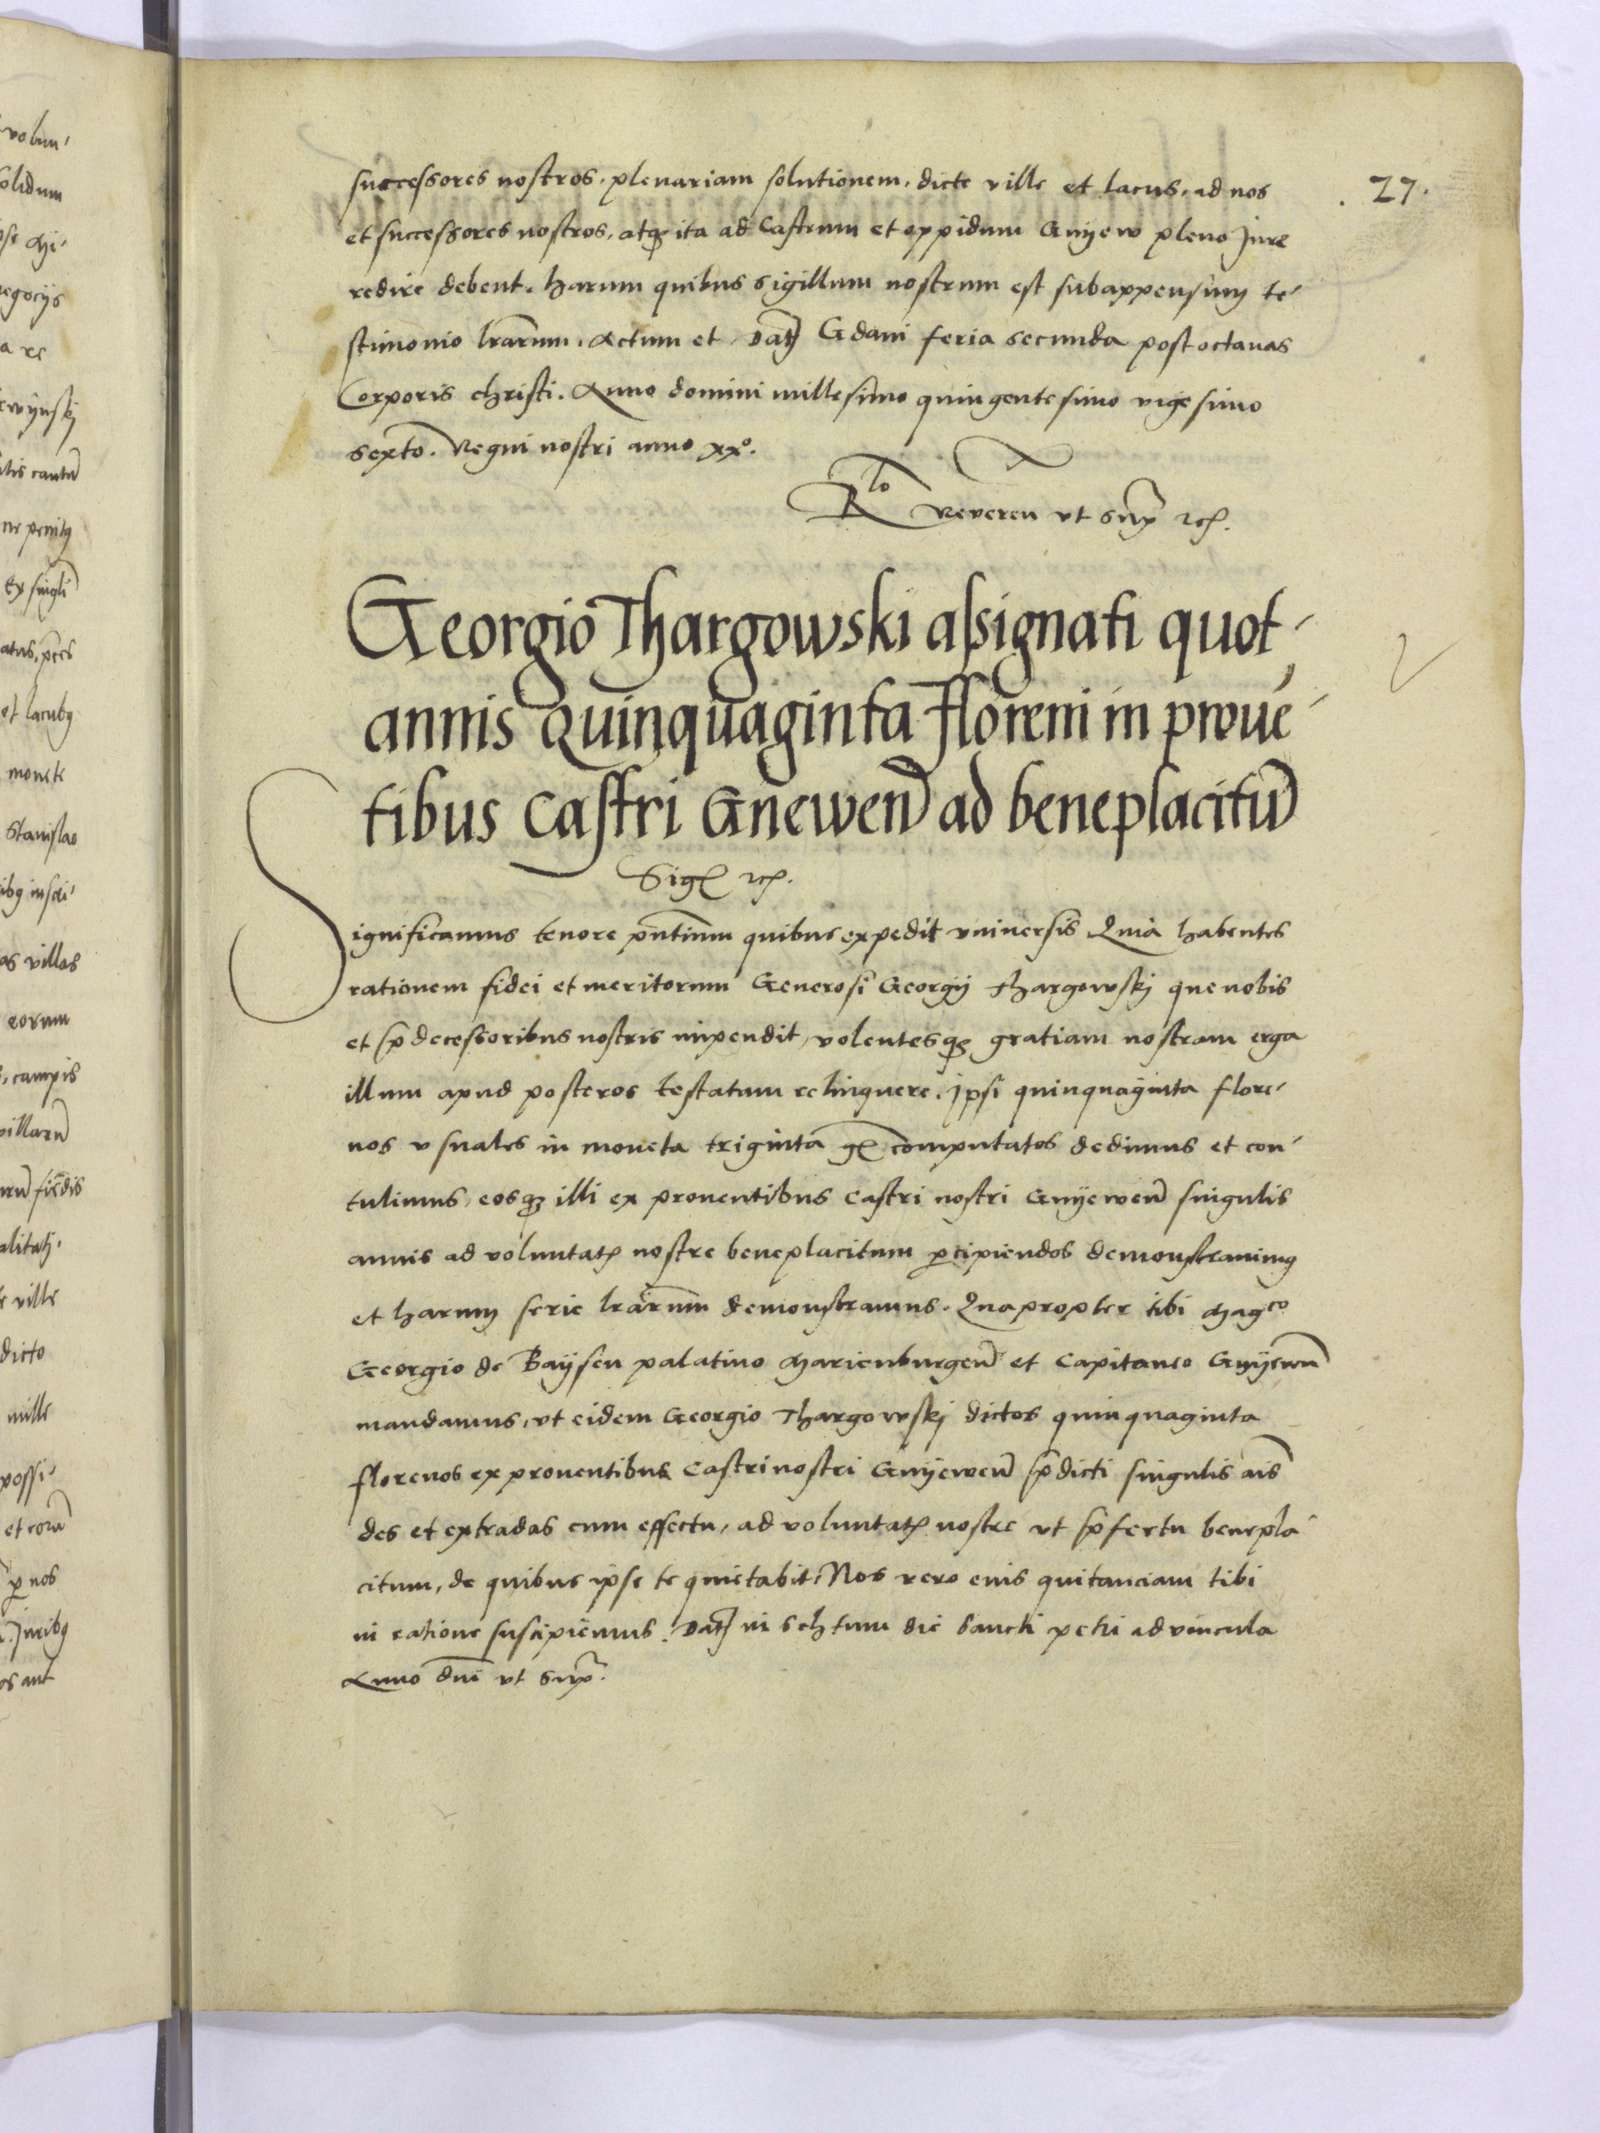 27.
successores nostros, plenariam solutionem, dicte ville et lacus, ad nos
et successores nostros, atqꝫ ita ad Castrum et oppidum Gnyew pleno Jure
redire debent. harum quibus sigillum nostrum est subappensum te-
stimonio lrarum. Actum et Dat Gdani feria secunda post octauas
Corporis christi. Anno domini millesimo quingentesimo vigesimo
sexto. Regni nostri anno xxº.
Rlo Reueren vt supr etc.
Georgio Thargowski assignati quot-
annis quinquaginta floreni in prouē-
tibus Castri Gnewen ad beneplacitū
Sig etc.
Significamus tenore pntium quibus expedit vniuersis Quia habentes
rationem fidei et meritorum Generosi Georgij Thargowskj que nobis
et pdecessoribus nostris impendit, volentesqꝫ gratiam nostram erga
illum apud posteros testatam relinquere. Jpsi quinquaginta flore-
nos vsuales in moneta triginta g computatos dedimus et con-
tulimus, eosqꝫ illi ex prouentibus Castri nostri Gnyewen singulis
annis ad voluntatꝭ nostre beneplacitum pcipiendos demonstrauimꝰ
et harum serie lrarum demonstramus. Quapropter tibi Magco
Georgio de Baysen palatino Marienburgen et Capitaneo Gnyewen
mandamus, vt eidem Georgio Thargowskj dictos quinquaginta
florenos ex prouentibus Castri nostri Gnyewen pdicti singulis ais
des et extradas cum effectu, ad voluntatꝭ nostre vt pfertu benepla-
citum, de quibus ipse te quietabit. Nos vero eius quitanciam tibi
in ratione suscipiemus. Dat in Schtum die Sancti petri ad vincula
Anno dni vt supr.